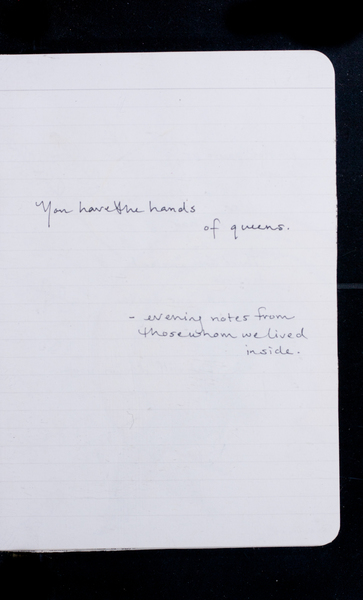 You have the hands
of queens.
- evening notes from
those whom we lived
inside.